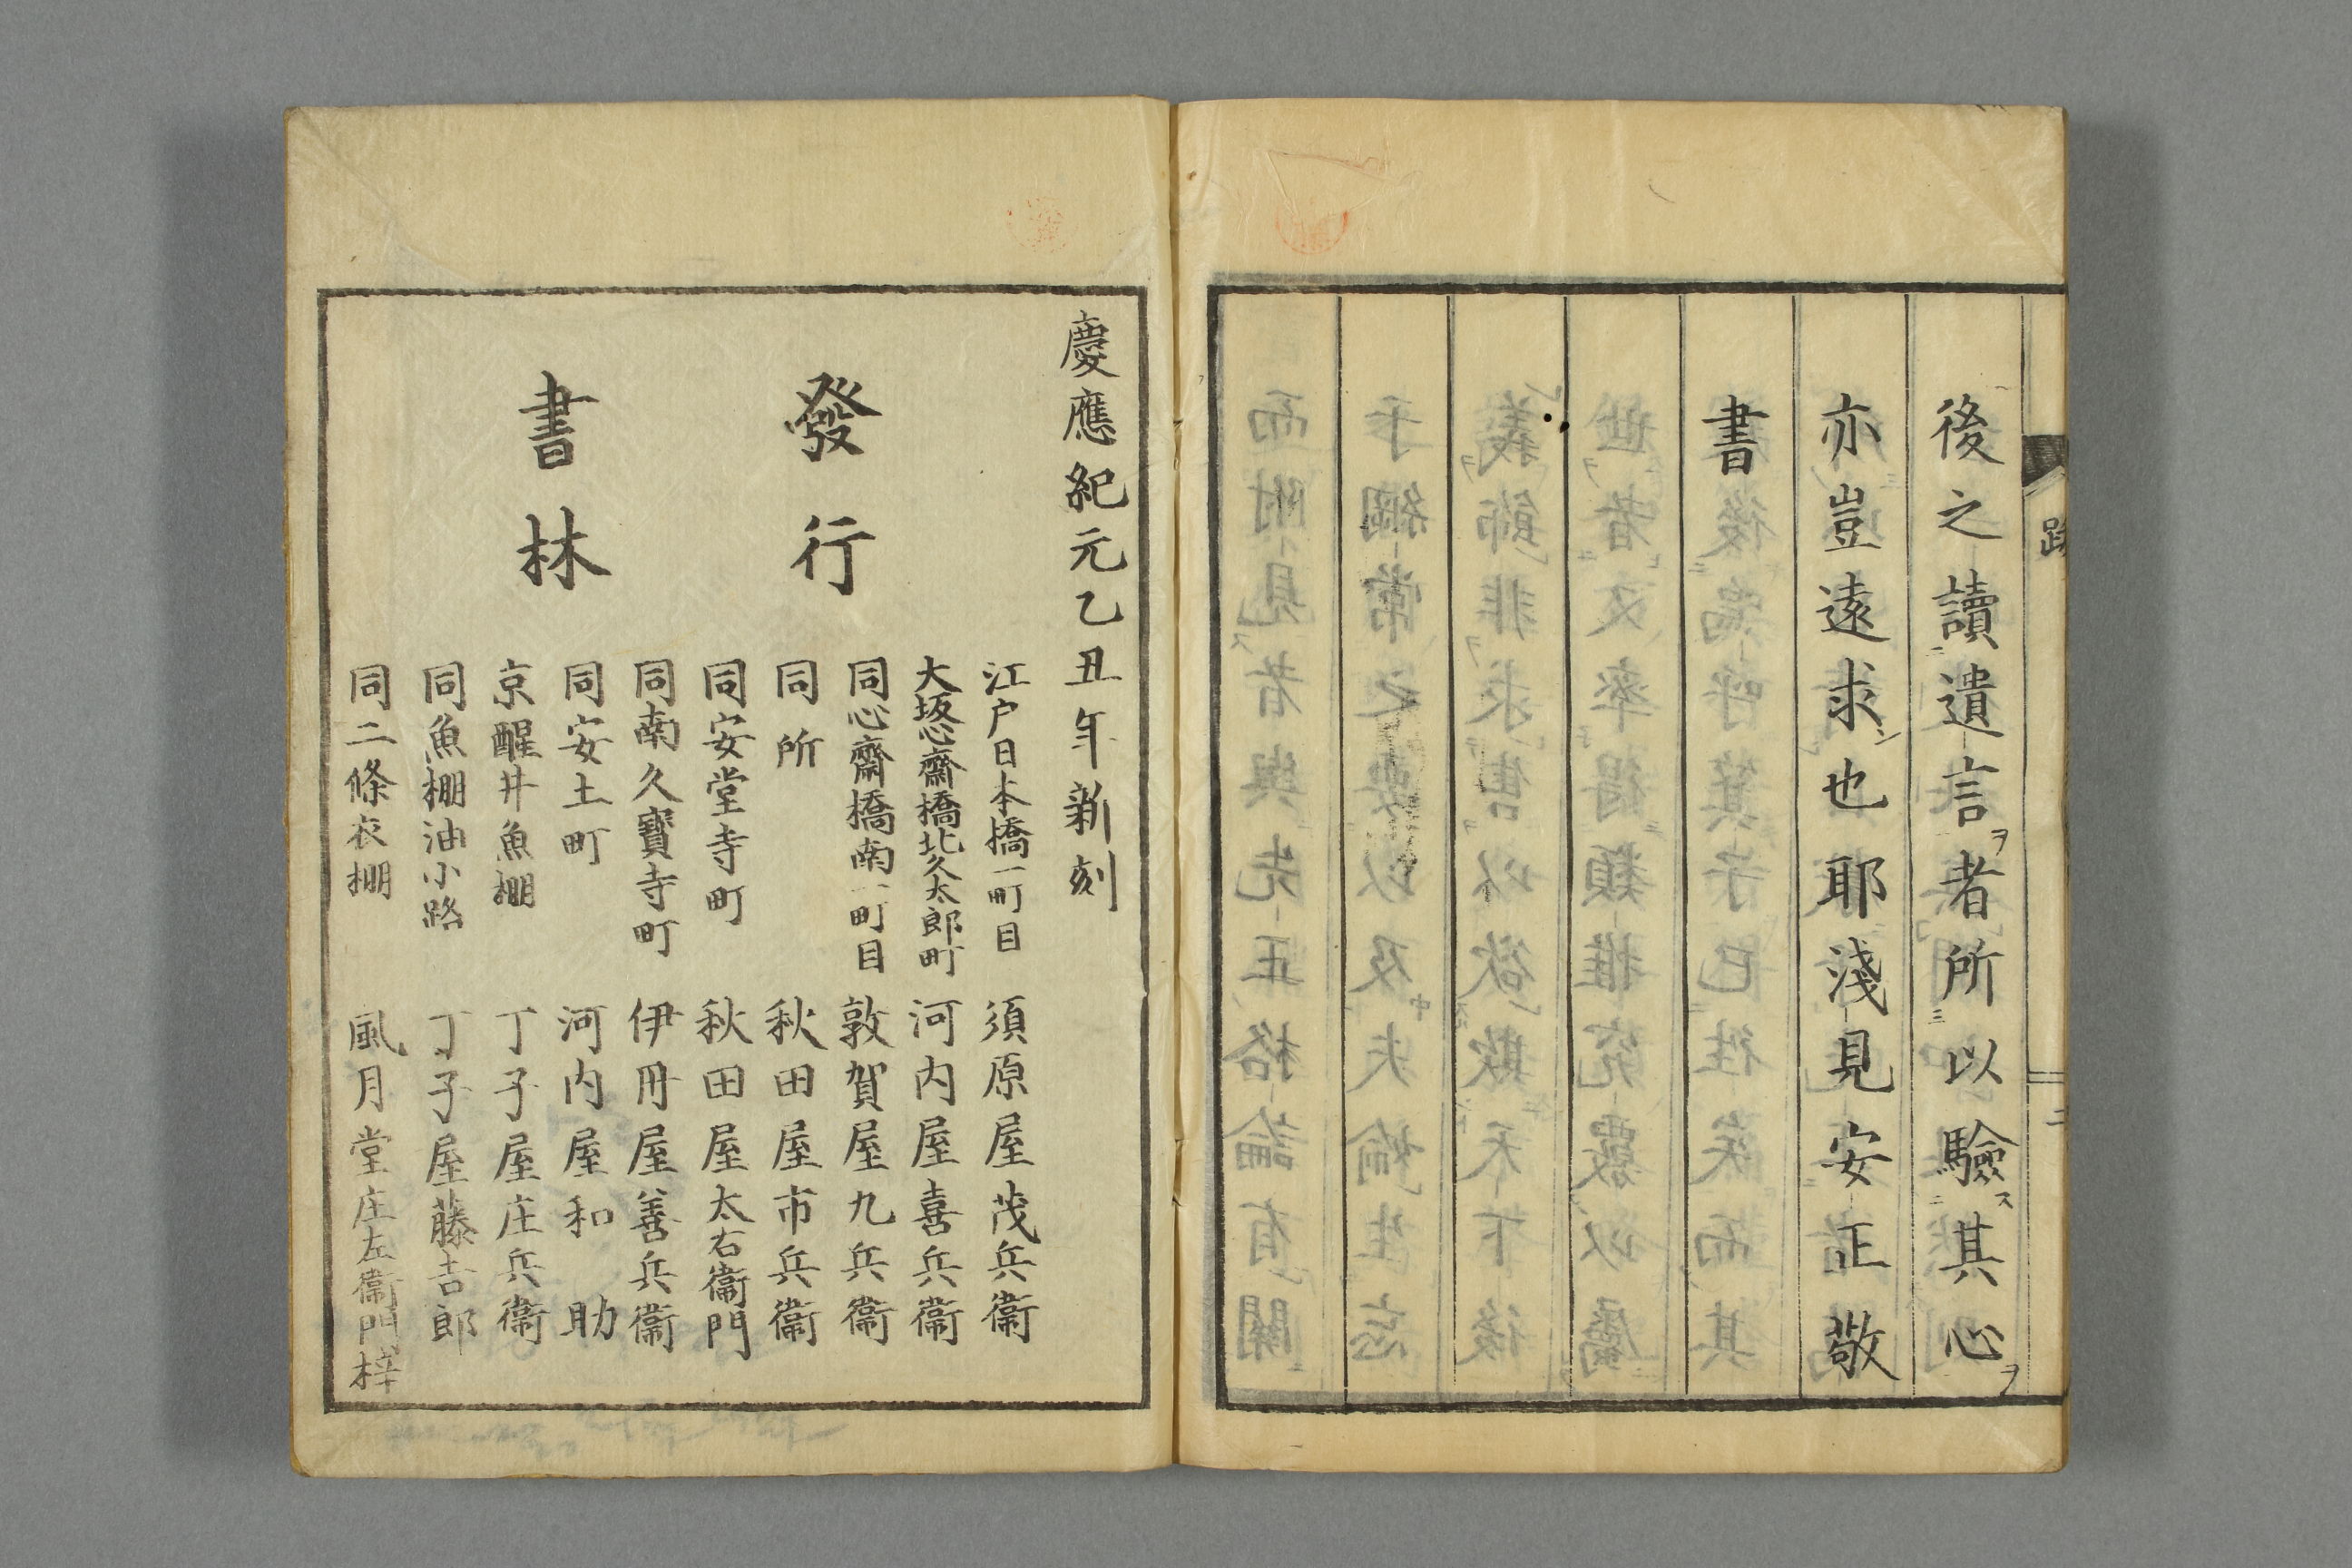 後之讀遺言ヲ者所以驗スル其心ヲ
亦豈遠求ン也耶淺見安正敬
書
跋
二
慶應紀元乙丑年新刻
發行
書林
江户日本橋一町目 須原屋茂兵衞
大坂心齋橋北久太郎町 河内屋喜兵衞
同心齋橋南一町目 敦賀屋九兵衞
同所 秋田屋市兵衞
同安堂寺町 秋田屋太右衞門
同南久寳寺町 伊丹屋善兵衞
同安土町 河内屋和助
京醒井魚棚 丁子屋庄兵衞
同魚棚油小路 丁子屋藤吉郎
同二條衣棚 風月堂庄左衞門梓